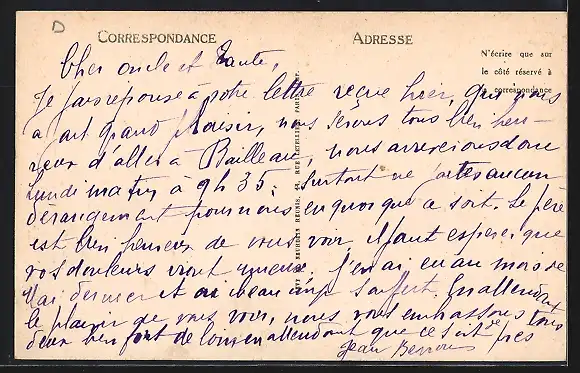 CORRESPONDANCE
ADRESSE
N'écrire que sur
le côté réservé à
la correspondance
D
Cher oncle et Tante,
Je fais reponse à votre lettre reçue hier, qui nous
a fait grand plaisir, nous serons tous bien heu-
reux d'aller à Bailleau, nous arriverons donc
Lundi matin à 9h35. Surtout ne faites aucun
derangement pour nous en quoi que ce soit. Le père
est bien heureux de vous voir, il faut esperer que
vos douleurs vont mieux. J'en ai eu au mois de
Mai dernier et ai beaucoup souffert. En attendant
le plaisir de vous voir, nous vous embrassons tous
deux bien fort de loin en attendant que ce soit de près
Jean